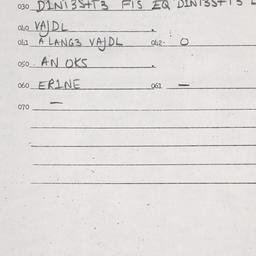 030 DINI3S+T3 FIS EQ DINI3S+T3
040 VAJDL .
041 A LANG3 VAJDL 042. O
050 AN OKS .
060 ERINE 061 —
070 —